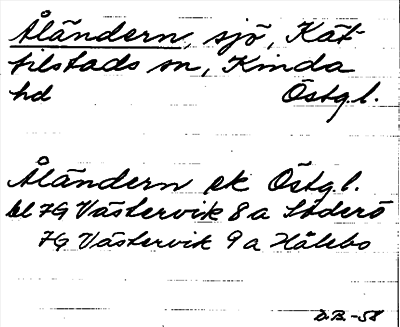 Åländern, sjö, Kät-
tilstads sn, Kinda
hd Östgl.
Åländern ek Östgl.
bl 7G Västervik 8a Söderö
7G Västervik 9a Hålebo
D.B.-58